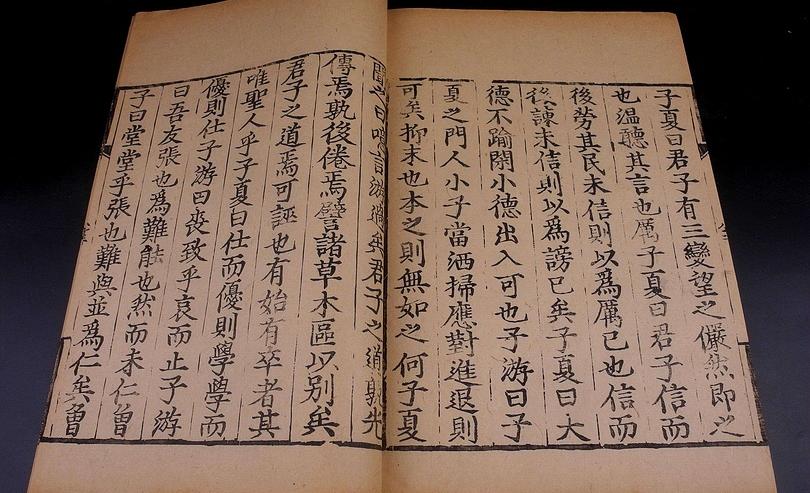 子夏曰君子有三變望之儼然即之
也溫聽其言也厲子夏曰君子信而
後勞其民未信則以爲厲已也信而
後諫未信則以爲謗已矣子夏曰大
德不踰閑小德出入可也子游曰子
夏之門人小子當洒掃應對進退則
可矣抑末也本之則無如之何子夏
聞之曰噫言游過矣君子之道孰先
傳焉孰後倦焉譬諸草木區以別矣
君子之道焉可誣也有始有卒者其
唯聖人乎子夏曰仕而優則學學而
優則仕子游曰喪致乎哀而止子游
曰吾友張也為難能也然而未仁曾
子曰堂堂乎張也難與並爲仁矣曾